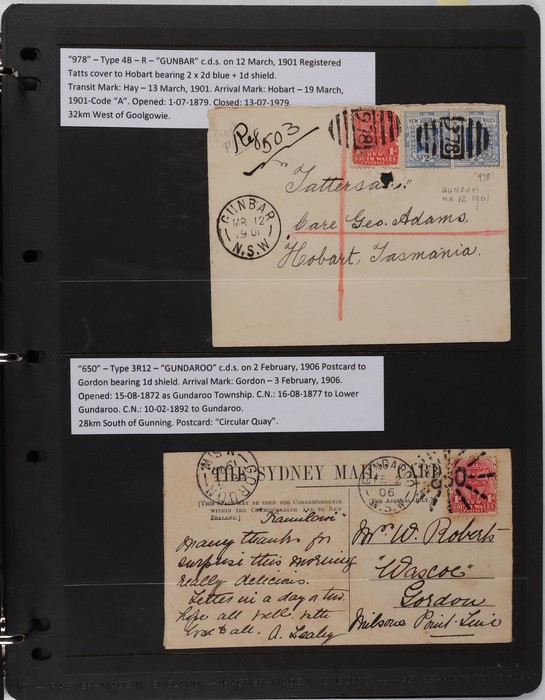 "978" – Type 4B – R – "GUNBAR" c.d.s. on 12 March, 1901 Registered
Tatts cover to Hobart bearing 2 x 2d blue + 1d shield.
Transit Mark: Hay – 13 March, 1901. Arrival Mark: Hobart – 19 March,
1901-Code "A". Opened: 1-07-1879. Closed: 13-07-1979.
32km West of Goolgowie.
Reg 503
978
NEW
SOUTH WALES
978
"Tattersall"
'978'
GUNDAH
MR 12 1901
GUNBAR
MR 12
1901
N.S.W
Care Geo. Adams.
Hobart, Tasmania.
"650" – Type 3R12 – "GUNDAROO" c.d.s. on 2 February, 1906 Postcard to
Gordon bearing 1d shield. Arrival Mark: Gordon – 3 February, 1906.
Opened: 15-08-1872 as Gundaroo Township. C.N.: 16-08-1877 to Lower
Gundaroo. C.N.: 10-02-1892 to Gundaroo.
28km South of Gunning. Postcard: "Circular Quay".
GORDON
N.S.W
THE SYDNEY MAIL CARD
GUNDAROO
FE 2
06
N.S.W
[THIS SPACE MAY BE USED FOR CORRESPONDENCE
WITHIN THE COMMONWEALTH AND TO NEW
ZEALAND.]
many thanks for
surprise this morning
really delicious.
Letter in a day or two
hope all well with
love to all. A. Leahy
Mr W. Roberts
"Wascoe"
Gordon
Milsons Point Line